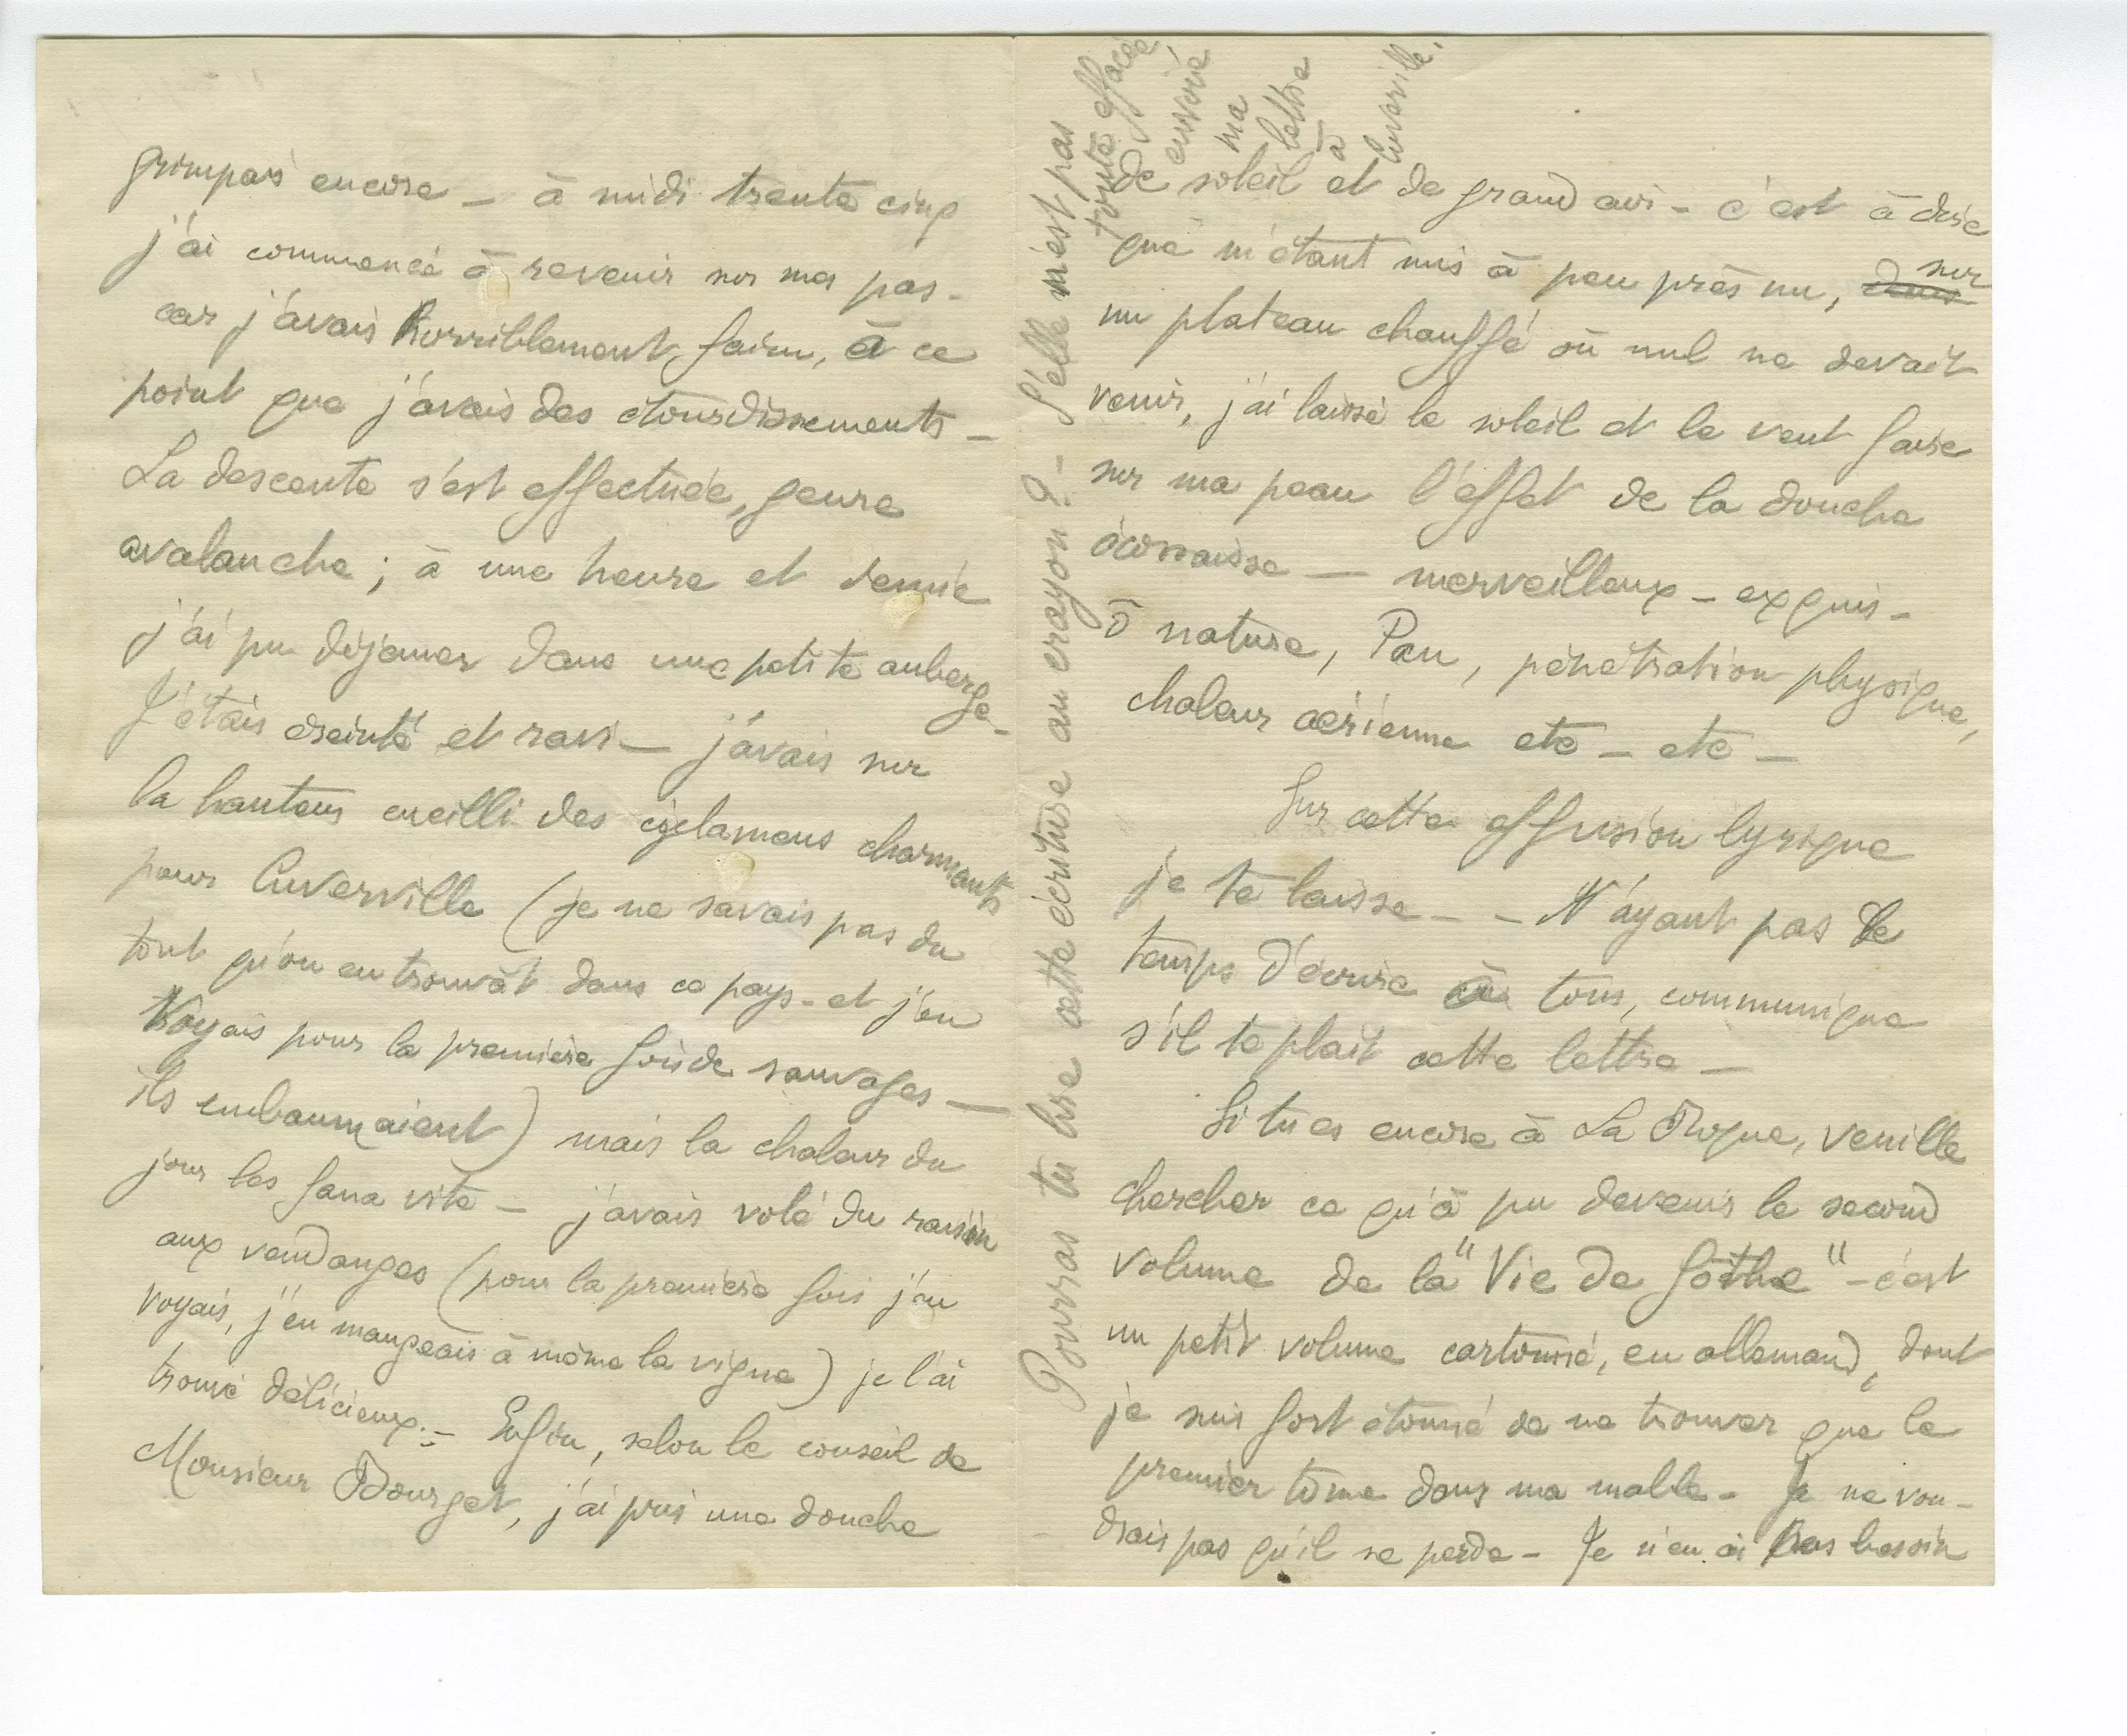 grimpais encore – à midi trente cinq
j'ai commencé à revenir sur mes pas –
car j'avais horriblement faim, à ce
point que j'avais des étourdissements –
La descente s'est effectuée, genre
avalanche ; à une heure et demie
j'ai pu déjeuner dans une petite auberge –
J'étais éreinté et ravi – j'avais sur
la hauteur cueilli des cyclamens charmants
pour Cuverville (je ne savais pas du
tout qu'on en trouvât dans ce pays – et j'en
voyais pour la première fois de sauvages –
ils embaumaient) mais la chaleur du
jour les fana vite – j'avais volé du raisin
aux vendanges (pour la première fois j'en
voyais, j'en mangeais à même la vigne) je l'ai
trouvé délicieux. – Enfin, selon le conseil de
Monsieur Bourget, j'ai pris une douche
de soleil et de grand air – c'est à dire
que m'étant mis à peu près nu, dans sur
un plateau chauffé où nul ne devait
venir, j'ai laissé le soleil et le vent faire
sur ma peau l'effet de la douche
écossaise – merveilleux – exquis –
ô nature, Pan, pénétration physique,
chaleur aérienne etc – etc –
Sur cette effusion lyrique
je te laisse – – N'ayant pas le
temps d'écrire à tous, communique
s'il te plait cette lettre –
Si tu es encore à La Roque, veuille
chercher ce qu'à pu devenir le second
volume de la "Vie de Göthe" – c'est
un petit volume cartonné, en allemand, dont
je suis fort étonné de ne trouver que le
premier tome dans ma malle – Je ne vou-
drais pas qu'il se perde – Je n'en ai pas besoin
Pourras tu lire cette écriture au crayon ? – S'elle n'est pas
toute effacée,
envoie
ma
lettre
à
Cuverville.